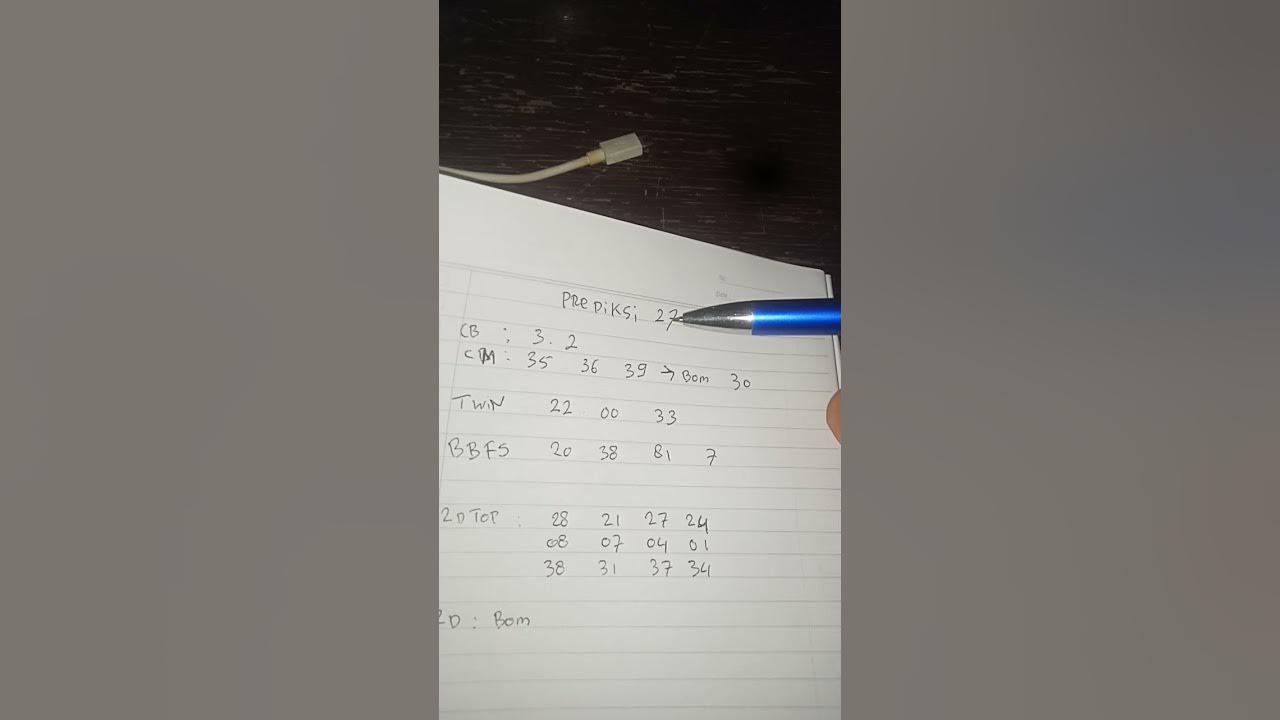 PREDiKSi 27
CB : 3. 2
CM : 35 36 39 → Bom 30
TWiN 22 00 33
BBFS 20 38 81 7
2D TOP : 28 21 27 24
08 07 04 01
38 31 37 34
2D : Bom